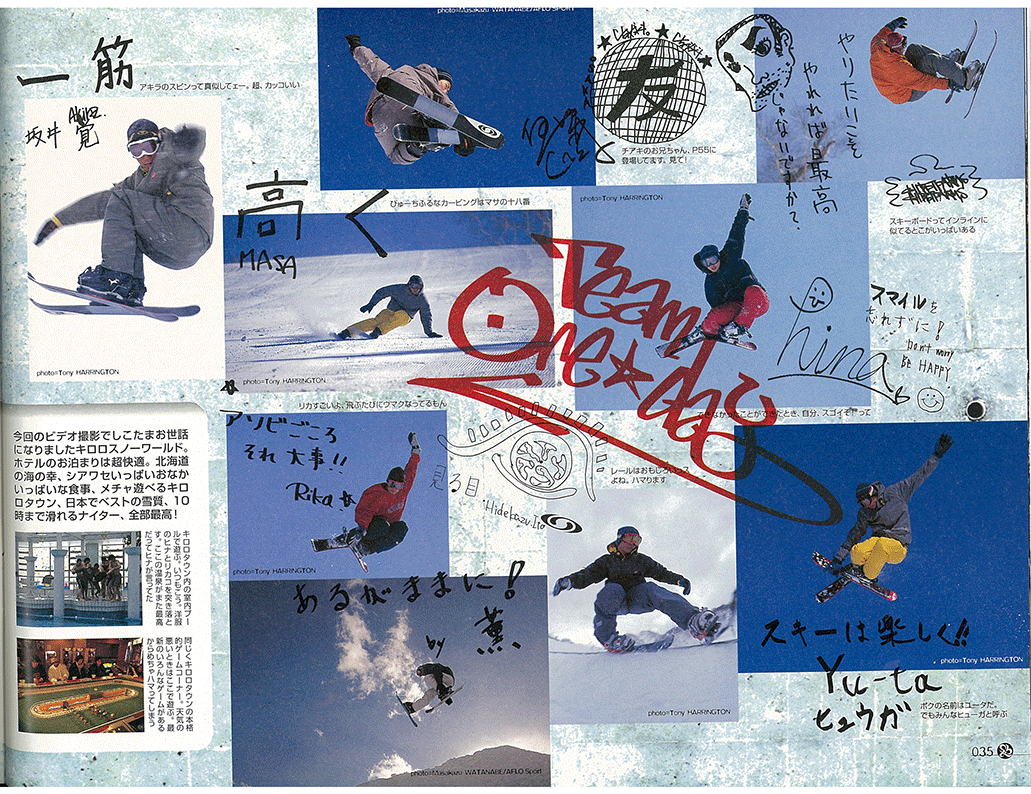 photo=Masakazu WATANABE/AFLO SPORT
一筋
アキラのスピンって真似してェー。超、カッコいい
坂井 覚
Akira.
photo=Tony HARRINGTON
友
チアキのお兄ちゃん、P.55に
登場してます。見て!
やりたいこそ
やれれば最高
じゃないですか?
スキーボードってインラインに
似てるとこがいっぱいある
高く
MASA
びゅーちふるなカービングはマサの十八番
photo=Tony HARRINGTON
photo=Tony HARRINGTON
Team
One★day
hina
スマイルを
忘れずに!
Don't worry
BE HAPPY
リカすごいよ、飛ぶたびにウマクなってるもん
できなかったことができたとき、自分、スゴイぞ!って
アソビごころ
それ大事!!
Rika
photo=Tony HARRINGTON
Hidekazu Ito
レールはおもしろいっス
よね。ハマります
今回のビデオ撮影でしこたまお世話
になりましたキロロスノーワールド。
ホテルのお泊まりは超快適。北海道
の海の幸、シアワセいっぱいおなか
いっぱいな食事、メチャ遊べるキロ
ロタウン、日本でベストの雪質、10
時まで滑れるナイター、全部最高!
キロロタウン内の室内プー
ルで遊ぶ。いつもこう。洋服
のヒナとリカコを突き落と
す。ここの温泉がまた最高
だってヒナが言ってた
同じくキロロタウンの本格
的ゲームコーナー。天気の
悪いときはここで遊ぶ。最
新のいろんなゲームがある
からめちゃハマってしまう
あるがままに!
by 薫
photo=Masakazu WATANABE/AFLO Sport
photo=Tony HARRINGTON
スキーは楽しく!!
photo=Tony HARRINGTON
Yu-ta
ヒュウガ
ボクの名前はユータだ。
でもみんなヒューガと呼ぶ
035